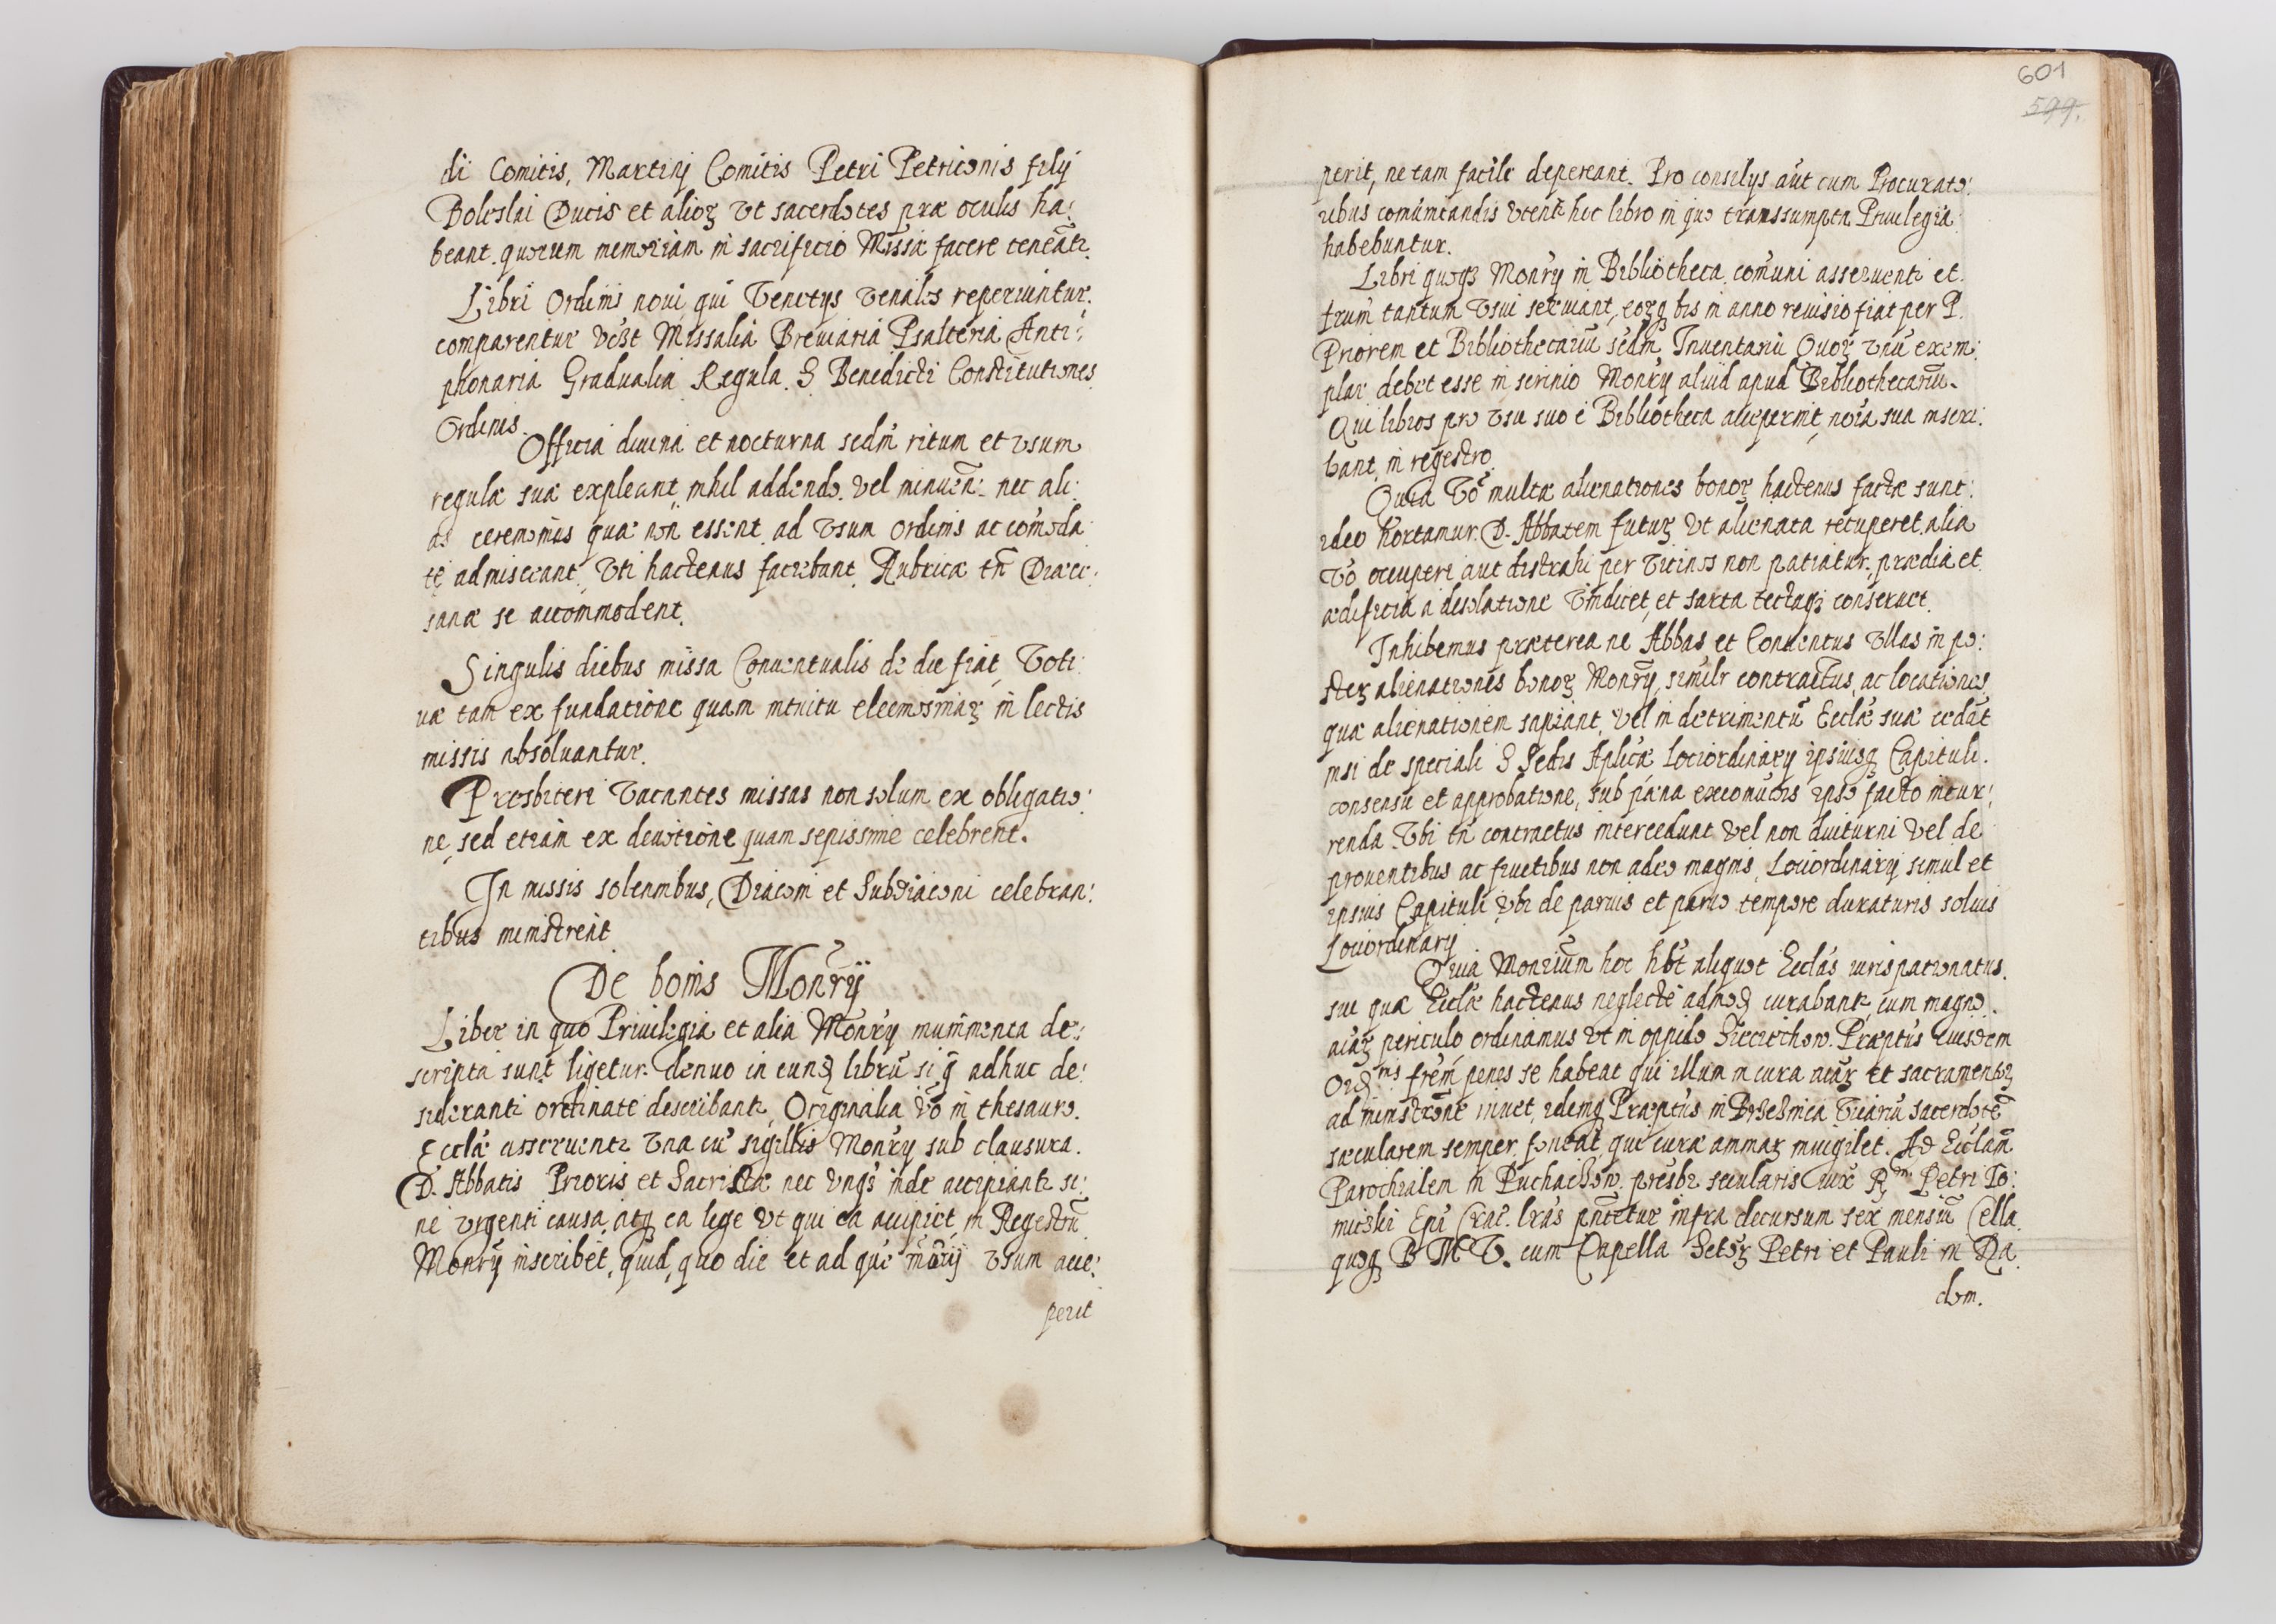 di Comitis, Martinj Comitis Petri Petriconis filij
Boleslai Ducis et alioꝝ vt sacerdotes præ oculis ha:
beant. quorum memoriam in sacrificio Missæ facere teneātr.
Libri Ordinis noui qui Venetys venales reperiuntur.
comparentur vt st Missalia Breuiaria Psalteria Anti:
phonaria Gradualia Regula S Benedicti Constitutiones
Ordinis.
Officia diuina et nocturna secdm ritum et vsum
regulæ suæ expleant nihil addendo. vel minuen: nec ali:
as ceremonias quæ non essent ad vsum Ordinis accomoda
te admisceant, vti hactenus faciebant, Rubricæ tn̄ Diæce:
sanæ se accommodent.
Singulis diebus missa Conuentualis de die fiat, Voti:
uæ tam ex fundatione quam intuitu eleemosinaꝝ in lectis
missis absoluantur.
Præsbiteri vacantes missas non solum ex obligatio:
ne, sed etiam ex deuotione quam sepissime celebrent.
In missis solennibus, Diaconi et Subdiaconi celebran:
tibus ministrent
De bonis Monrÿ
Liber in quo Priuilegia et alia Monry munimenta de:
scripta sunt ligetur denuo in eunꝺ librū si q̄ adhuc de:
siderantr ordinate describantr, Originalia vo in thesauro.
Eccla asseruentr vna cū sigillis Monry sub clausura.
D. Abbatis Prioris et Sacristæ nec vnqs inde accipiantr si:
ne vrgenti causa, atq ea lege vt qui ea accipiet, in Regestrū
Monry inscribet, quid, quo die et ad que vsum acce:
perit
601
599.
perit, ne tam facile depereant. Pro consilys aut cum Procurato:
ribus comunicandis vtentr hoc libro in quo transsumpta Priuilegia
habebuntur.
Libri quoqꝫ Monry in Bibliotheca comuni asseruentr et
frum tantum vsui seruiant, eoꝝq bis in anno reuisio fiat per P.
Priorem et Bibliothecariū secdm Inuentariū Quoꝝ vnū exem:
plar debet esse in scrinio Monry aliud apud Bibliothecariū.
Qui libros pro vsu suo è Bibliotheca acceperint, noīa sua inscri:
bant in regestro.
Quia vo multæ alienationes bonoꝝ hactenus factæ sunt:
ideo hortamur D. Abbatem futuꝝ vt alienata recuperet, alia
vo occuperi aut distrahi per vicinos non patiatur, prædia et
ædificia a desolatione vindicet, et sarta tectaqꝫ conseruet.
Inhibemus præterea ne Abbas et Conuentus vllas in po:
steꝝ alienationes bonoꝝ Monry, simile contractus, ac locationes
quæ alienationem sapiant, vel in detrimentū Eccłæ suæ cedāt
nisi de speciali S Sedis Aplicæ Lociordinary ipsiusq Capituli.
consensu et approbatione, sub pæna excomucois ipso facto incur:
renda. Vbi tn̄ contractus intercedunt vel non diuturni vel de
prouentibus ac fructibus non adeo magnis, Lociordinary simul et
ipsius Capituli vbi de paruis et paruo tempore duraturis solius
Lociordinary
Quia Monriūm hoc hbt aliquot Ecclas iurispatronatus.
sui quæ Ecclæ hactenus neglecte admoꝺ curabantr, cum magno
aiaꝝ periculo ordinamus vt in oppido Sieciechow. Præptus eiusdem
Ordms frem penes se habeat qui illum in cura aiaꝝ et sacramentoꝝ
administrōne iuuet, idemq Præptus in vicariū sacerdotē
sæcularem semper foueat, qui curæ animaꝝ inuigilet. Ad Ecclam
Parochialem in Puchaczow. presbr secularis iux Rmi Petri To:
micski Epi Crac. lras pn̄tetur infra decursum sex mensiū Cella
quoqꝫ B M V. cum Capella Sctoꝝ Petri et Pauli in Ra
dom.